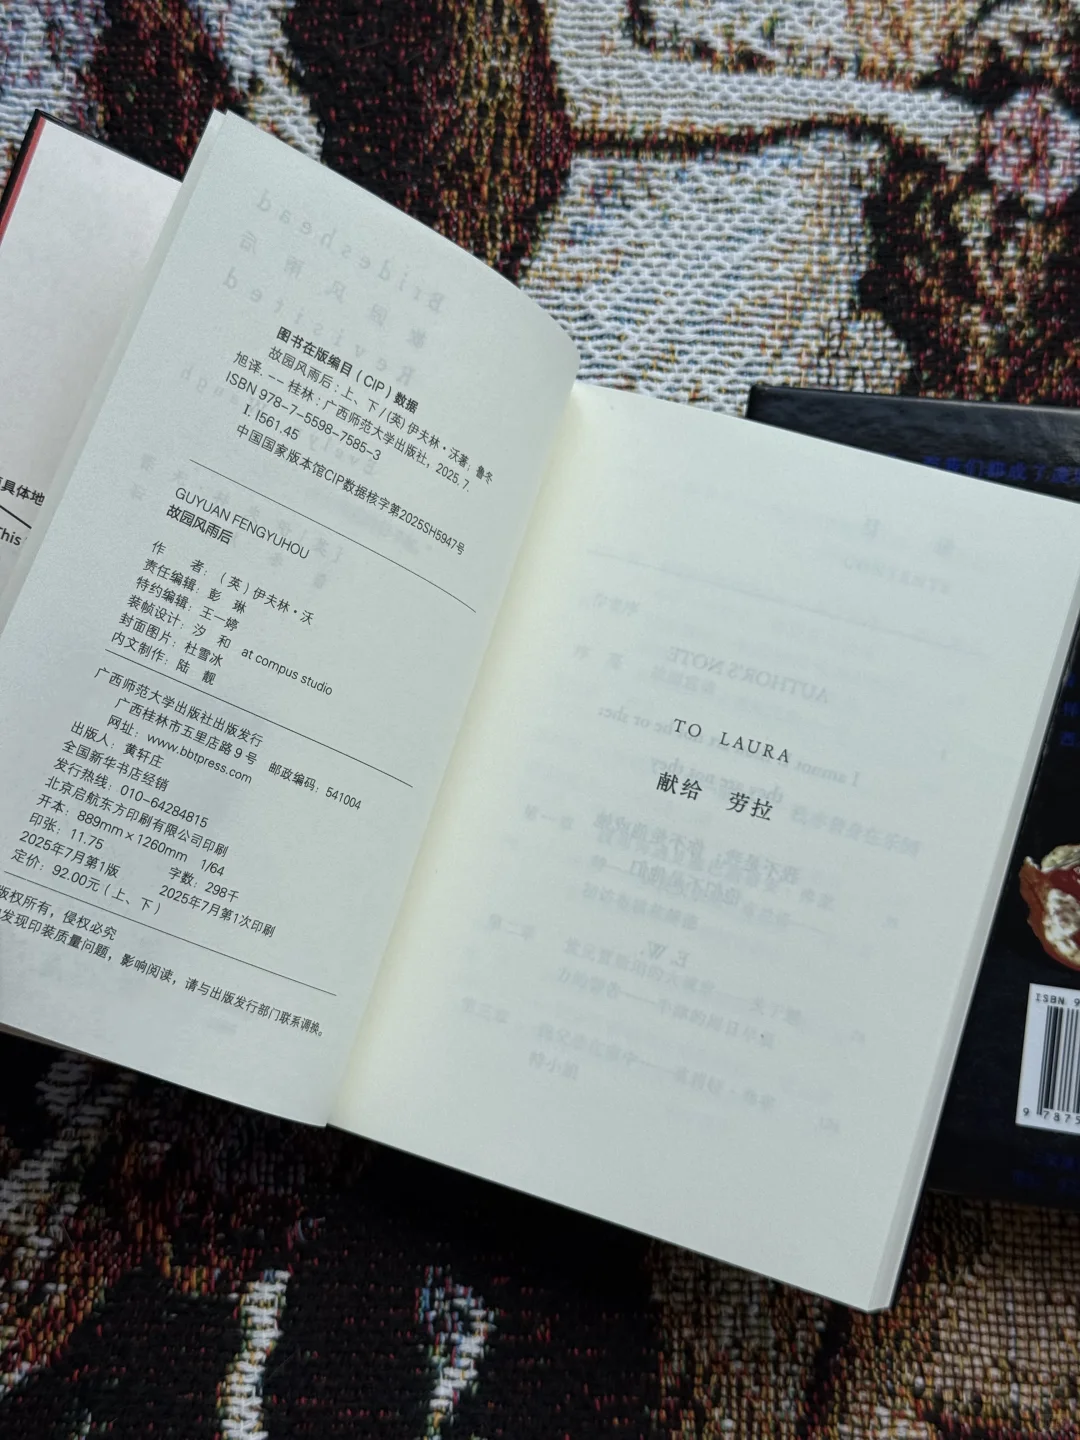 具体地
This
图书在版编目（CIP）数据
故园风雨后：上、下/(英)伊夫林·沃著；鲁冬
旭译. -- 桂林：广西师范大学出版社，2025. 7.
ISBN 978-7-5598-7585-3
Ⅰ. I561.45
中国国家版本馆CIP数据核字第2025SH5947号
GUYUAN FENGYUHOU
故园风雨后
作 者：（英）伊夫林·沃
责任编辑：彭 琳
特约编辑：王一婷
装帧设计：汐 和 at compus studio
封面图片：杜雪冰
内文制作：陆 靓
广西师范大学出版社出版发行
广西桂林市五里店路9号 邮政编码：541004
网址：www.bbtpress.com
出版人：黄轩庄
全国新华书店经销
发行热线：010-64284815
北京启航东方印刷有限公司印刷
开本：889mm×1260mm 1/64
印张：11.75 字数：298千
2025年7月第1版 2025年7月第1次印刷
定价：92.00元（上、下）
版权所有，侵权必究
发现印装质量问题，影响阅读，请与出版发行部门联系调换。
TO LAURA
献给 劳拉
ISBN 9
9 7875